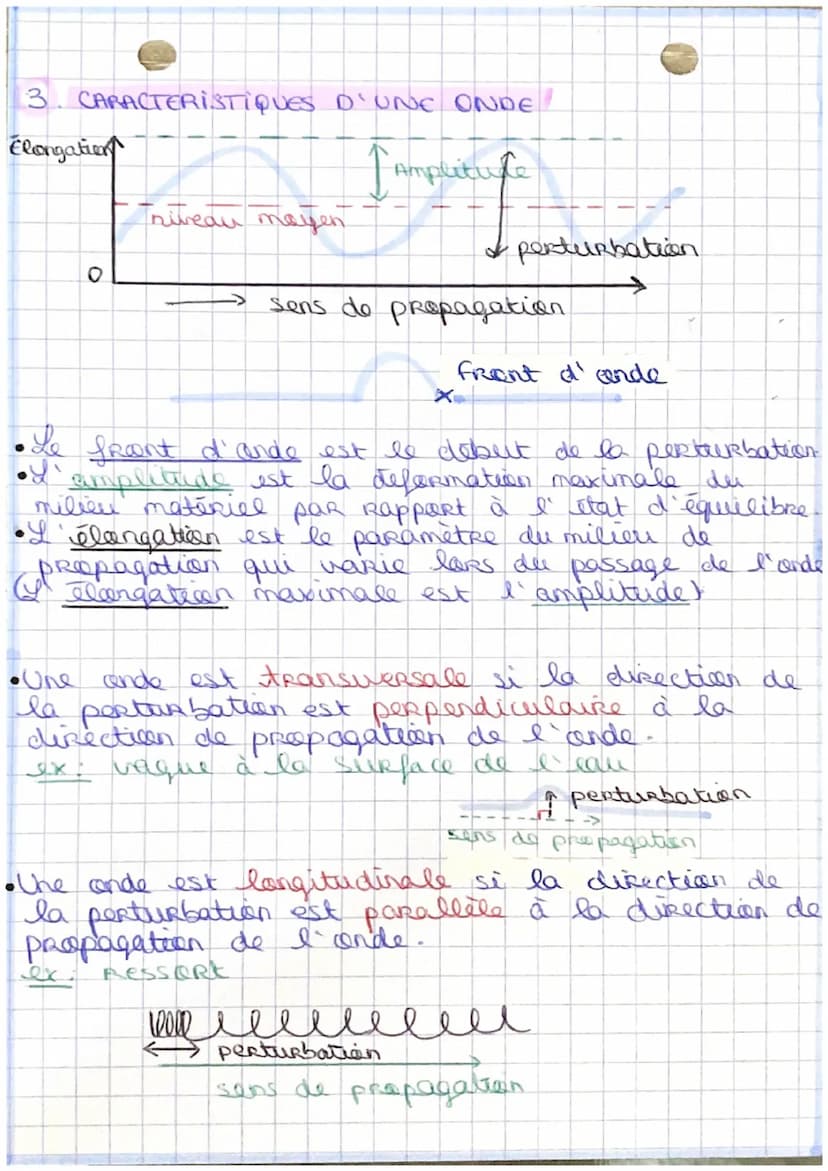 3. CARACTERISTIQUES D'UNE ONDE
Élongation
Amplitude
niveau moyen
perturbation
0
sens de propagation
front d'onde
x
• Le front d'onde est le début de la perturbation
• L'amplitude est la déformation maximale du
milieu matériel par rapport à l'état d'équilibre.
• L'élongation est le paramètre du milieu de
propagation qui varie lors du passage de l'onde
(L'élongation maximale est l'amplitude)
• Une onde est transversale si la direction de
la perturbation est perpendiculaire à la
direction de propagation de l'onde.
ex: vague à la surface de l'eau
perturbation
sens de propagation
• Une onde est longitudinale si la direction de
la perturbation est parallèle à la direction de
propagation de l'onde.
ex: ressort
perturbation
sens de propagation